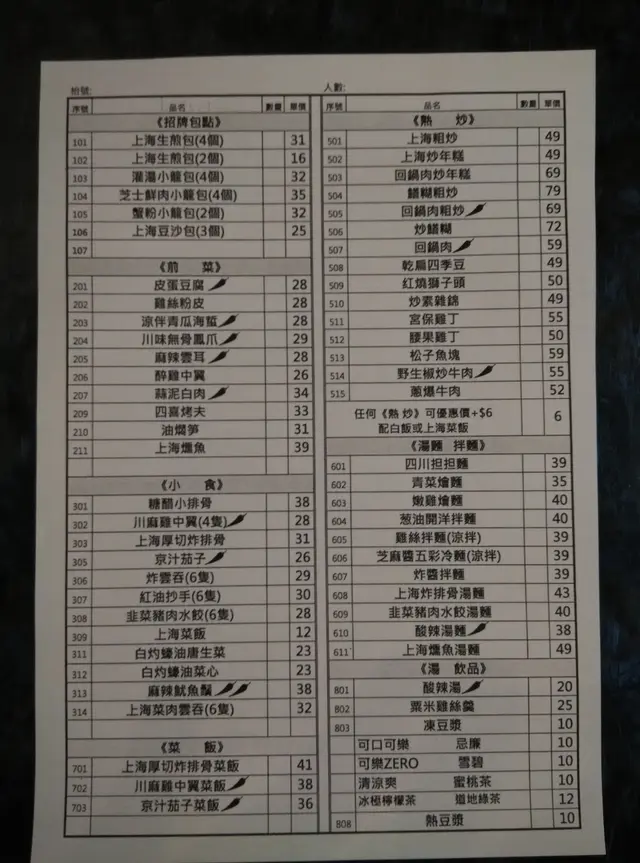 枱號:
序號 品名 數量 單價
《招牌包點》
101 上海生煎包(4個) 31
102 上海生煎包(2個) 16
103 灌湯小籠包(4個) 32
104 芝士鮮肉小籠包(4個) 35
105 蟹粉小籠包(2個) 32
106 上海豆沙包(3個) 25
107
《前 菜》
201 皮蛋豆腐 28
202 雞絲粉皮 28
203 涼伴青瓜海蜇 28
204 川味無骨鳳爪 29
205 麻辣雲耳 28
206 醉雞中翼 26
207 蒜泥白肉 34
209 四喜烤夫 33
210 油燜筍 31
211 上海燻魚 39
《小 食》
301 糖醋小排骨 38
302 川麻雞中翼(4隻) 28
303 上海厚切炸排骨 31
305 京汁茄子 26
306 炸雲吞(6隻) 29
307 紅油抄手(6隻) 30
308 韭菜豬肉水餃(6隻) 28
309 上海菜飯 12
311 白灼蠔油唐生菜 23
312 白灼蠔油菜心 23
313 麻辣魷魚鬚 38
314 上海菜肉雲吞(6隻) 32
《菜 飯》
701 上海厚切炸排骨菜飯 41
702 川麻雞中翼菜飯 38
703 京汁茄子菜飯 36
人數:
序號 品名 數量 單價
《熱 炒》
501 上海粗炒 49
502 上海炒年糕 49
503 回鍋肉炒年糕 69
504 鱔糊粗炒 79
505 回鍋肉粗炒 69
506 炒鱔糊 72
507 回鍋肉 59
508 乾扁四季豆 49
509 紅燒獅子頭 50
510 炒素雜錦 49
511 宮保雞丁 55
512 腰果雞丁 50
513 松子魚塊 59
514 野生椒炒牛肉 55
515 蔥爆牛肉 52
任何《熱 炒》可優惠價+$6
配白飯或上海菜飯 6
《湯麵 拌麵》
601 四川担担麵 39
602 青菜燴麵 35
603 嫩雞燴麵 40
604 葱油開洋拌麵 40
605 雞絲拌麵(涼拌) 39
606 芝麻醬五彩冷麵(涼拌) 39
607 炸醬拌麵 39
608 上海炸排骨湯麵 43
609 韭菜豬肉水餃湯麵 40
610 酸辣湯麵 38
611 上海燻魚湯麵 49
《湯 飲品》
801 酸辣湯 20
802 粟米雞絲羹 25
803 凍豆漿 10
可口可樂 忌廉 10
可樂ZERO 雪碧 10
清涼爽 蜜桃茶 10
冰極檸檬茶 道地綠茶 12
808 熱豆漿 10